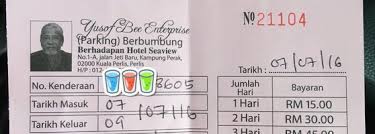 Yusof Bee Enterprise
(Parking) Berbumbung
Berhadapan Hotel Seaview
No.1-A, jalan Jeti Baru, Kampung Perak,
02000 Kuala Perlis, Perlis
H/P : 012
No 21104
Tarikh : 07/07/16
No. Kenderaan 8605
Tarikh Masuk 07/07/16
Tarikh Keluar 09
Jumlah Hari Bayaran
1 Hari RM 15.00
2 Hari RM 30.00
3 Hari RM 45.00